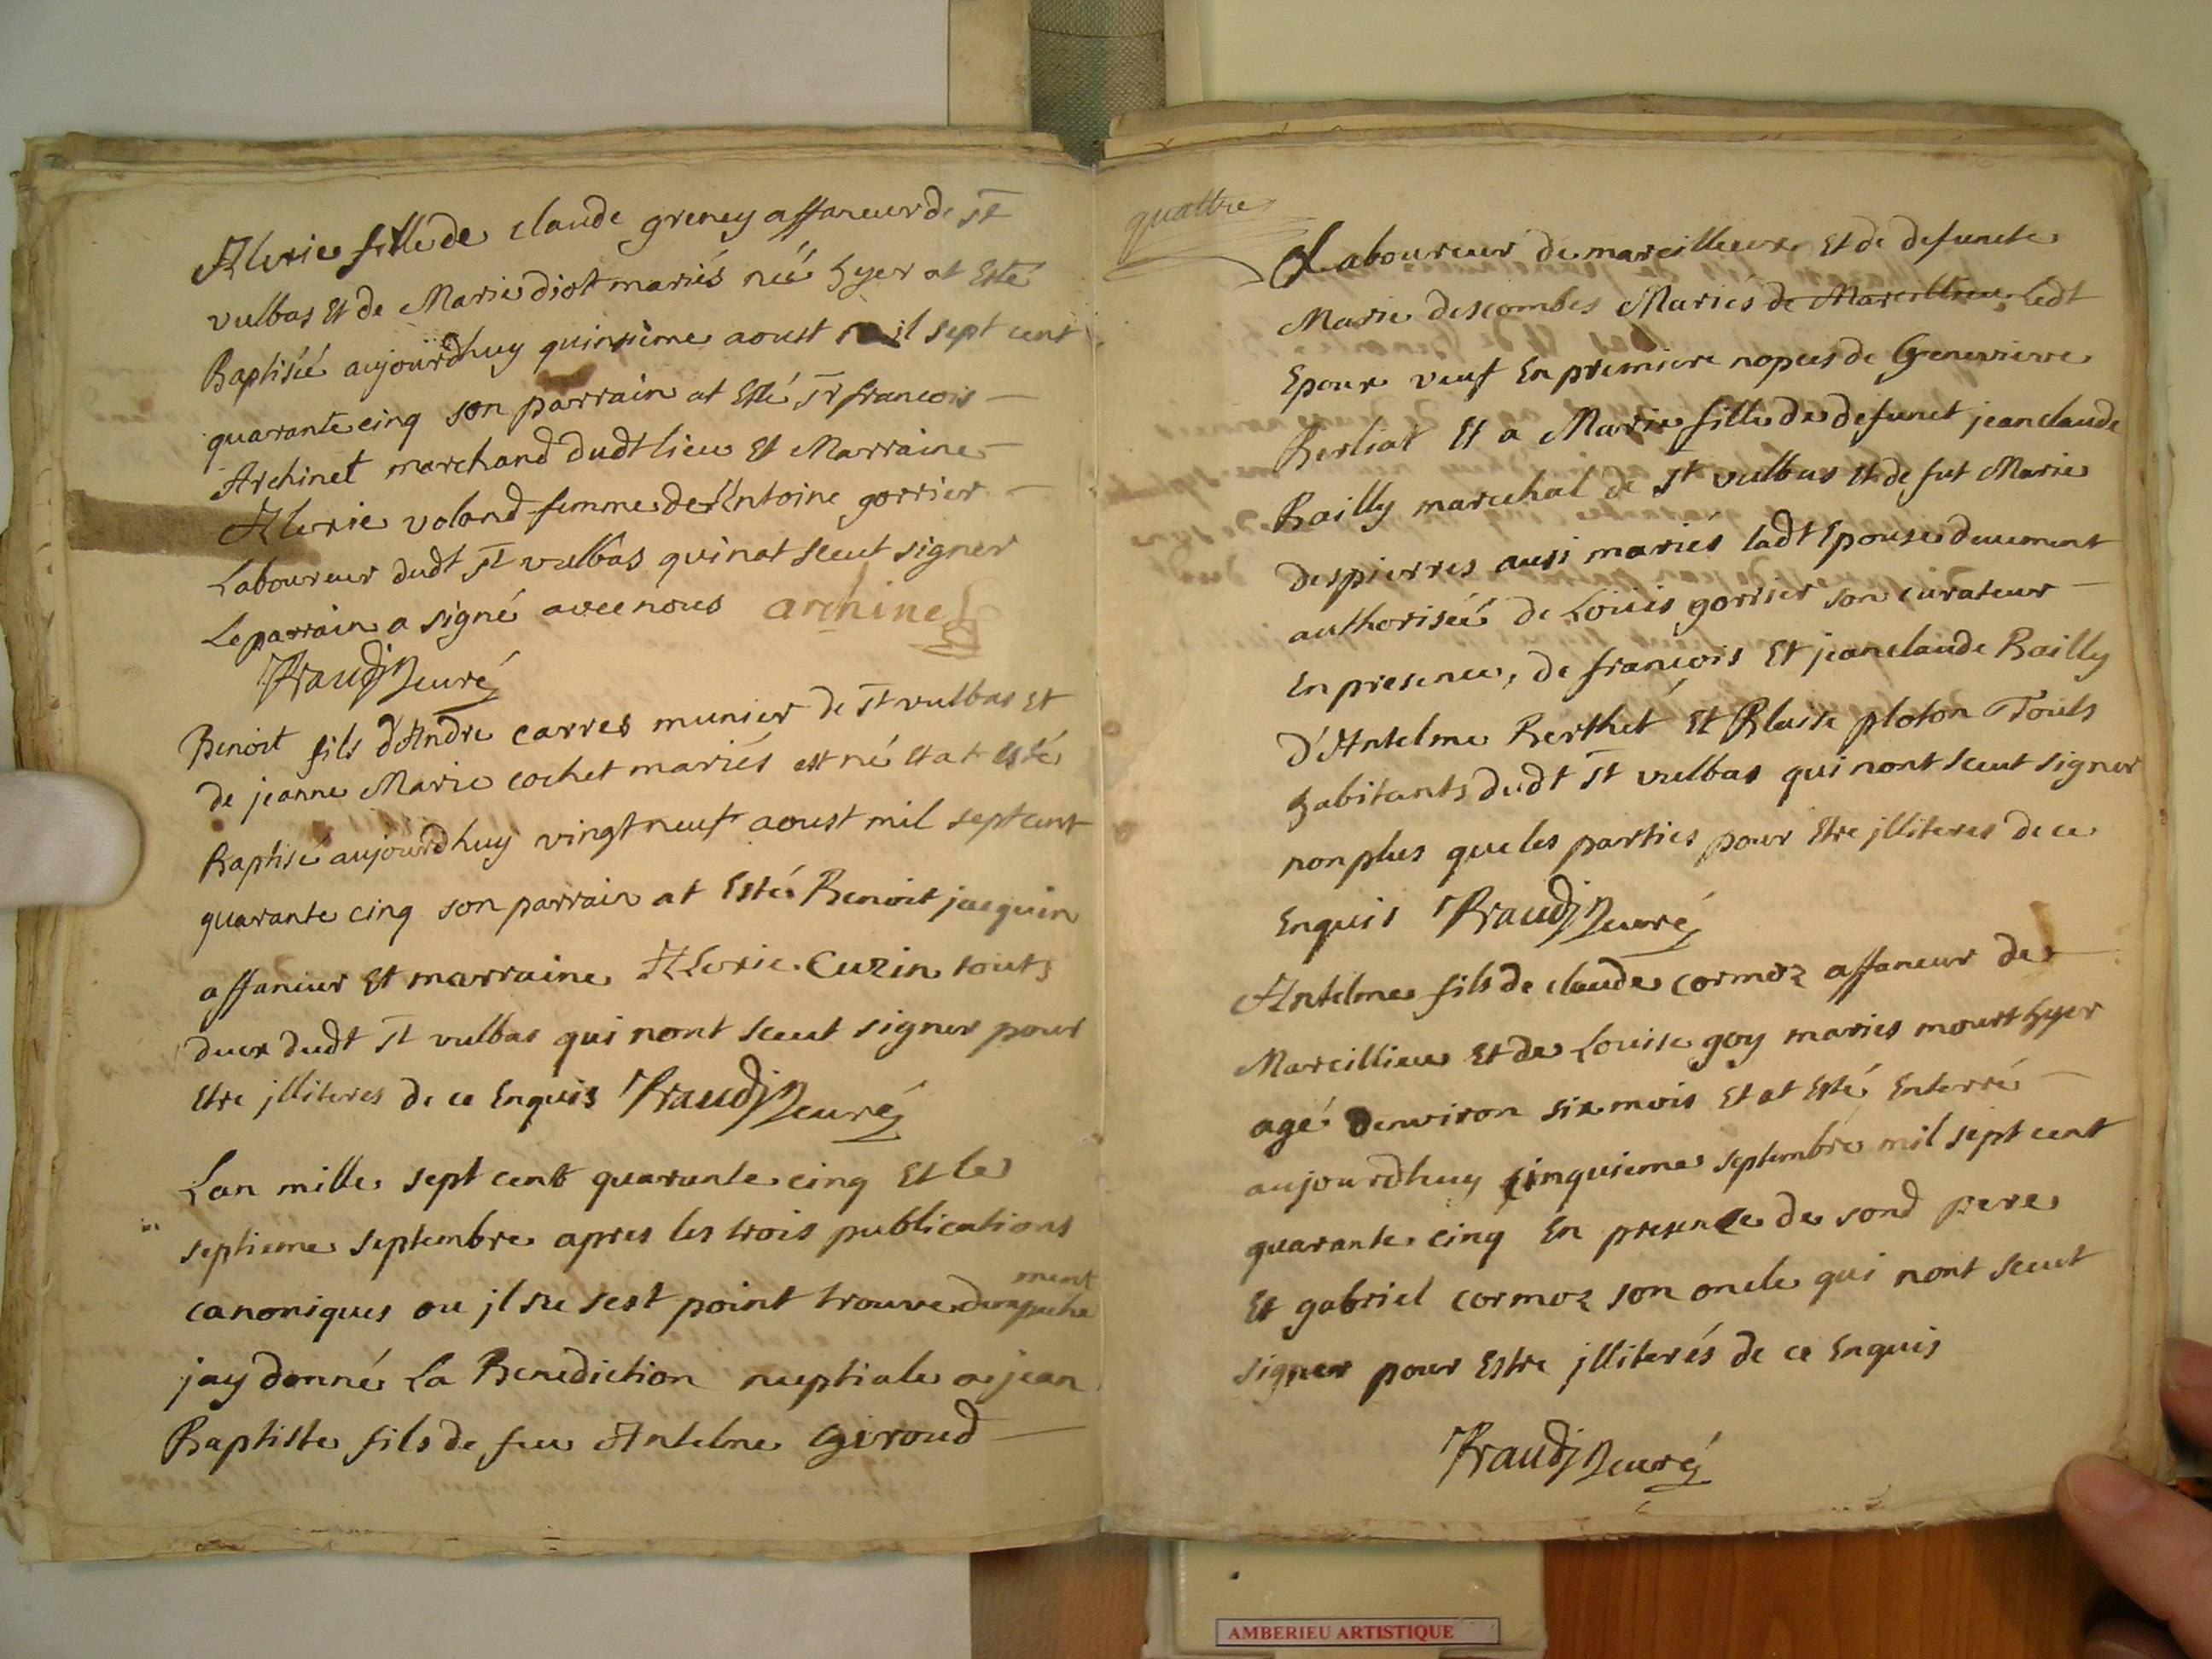 Alexie fille de claude greney affaneur de St
vulbas Et de Marie diot mariés née hyer at Esté
Baptisée aujourdhuy quinsième aoust mil sept cent
quarante cinq son parrain at Esté Sr francois
Archinet marchand dudt lieu Et Marraine
Alexie voland femme de Antoine gorrier
Laboureur dudt St vulbas qui nat sceut signer
Le parrain a signé avec nous archinet
curé
Benoit fils d'Andre carres munier de St vulbas Et
de jeanne Marie cochet mariés est né Et at esté
Baptisé aujourdhuy vingt neuf aoust mil sept cent
quarante cinq son parrain at Esté Benoit jacquin
affaneur Et marraine Alexie Cuzin touts
deux dudt St vulbas qui nont sceut signer pour
Etre jlliteres de ce Enquis curé
Lan mille sept cent quarante cinq Et le
septieme septembre apres les trois publications
canoniques ou jl ne sest point trouve dempeche
ment
jay donné La Benediction nuptiale a jean
Baptiste fils de feu Antelme Giroud
quattre
Laboureur de marcillieux Et de defuncte
Marie descombes Mariés de Marcillieu Ledt
Epoux veuf En premiere nopces de Genevieve
Berliat Et a Marie fille de defunct jean claude
Bailly marechal de St vulbas Et de fut Marie
despierres ausi mariés ladt Epouse deuement
authorisée de Loüis gorrier son curateur
En presence, de françois Et jean claude Bailly
d'Antelme Berthet Et Blaise ploton Touts
habitants dudt St vulbas qui nont sceut signer
non plus que les parties pour Etre jlliteres de ce
Enquis curé
Antelme fils de claude cormoz affaneur de
Marcillieu Et de Louise goy mariés mourt hyer
agé denviron six mois Et at esté Enterré
aujourdhuy cinquieme septembre mil sept cent
quarante cinq En presence de sond pere
Et gabriel cormoz son oncle qui nont sceut
signer pour Estre jlliterés de ce Enquis
curé
AMBERIEU ARTISTIQUE